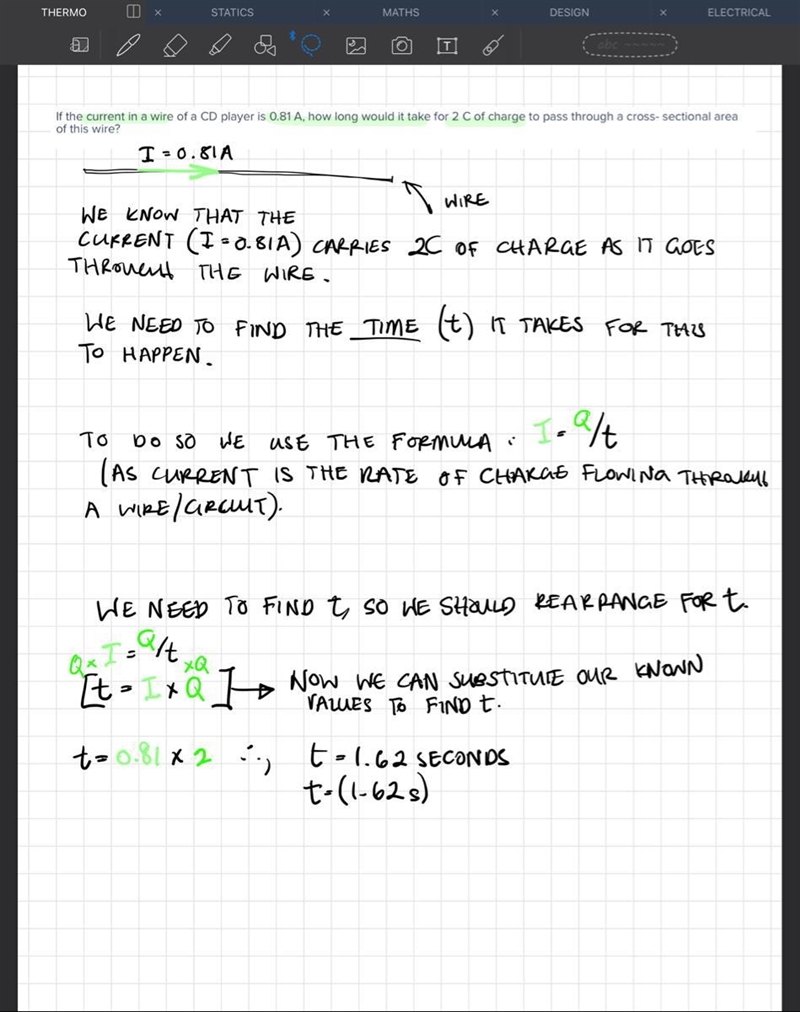 THERMO × STATICS × MATHS × DESIGN × ELECTRICAL
T abc
If the current in a wire of a CD player is 0.81 A, how long would it take for 2 C of charge to pass through a cross- sectional area
of this wire?
I = 0.81A
WIRE
WE KNOW THAT THE
CURRENT (I = 0.81A) CARRIES 2C OF CHARGE AS IT GOES
THROUGH THE WIRE.
WE NEED TO FIND THE TIME (t) IT TAKES FOR THIS
TO HAPPEN.
TO DO SO WE USE THE FORMULA : I = Q/t
(AS CURRENT IS THE RATE OF CHARGE FLOWING THROUGH
A WIRE/CIRCUIT).
WE NEED TO FIND t, SO WE SHOULD REARRANGE FOR t.
Q× I = Q/t ×Q
[t = I × Q] → NOW WE CAN SUBSTITUTE OUR KNOWN
VALUES TO FIND t.
t = 0.81 × 2 ∴, t = 1.62 SECONDS
t = (1.62s)